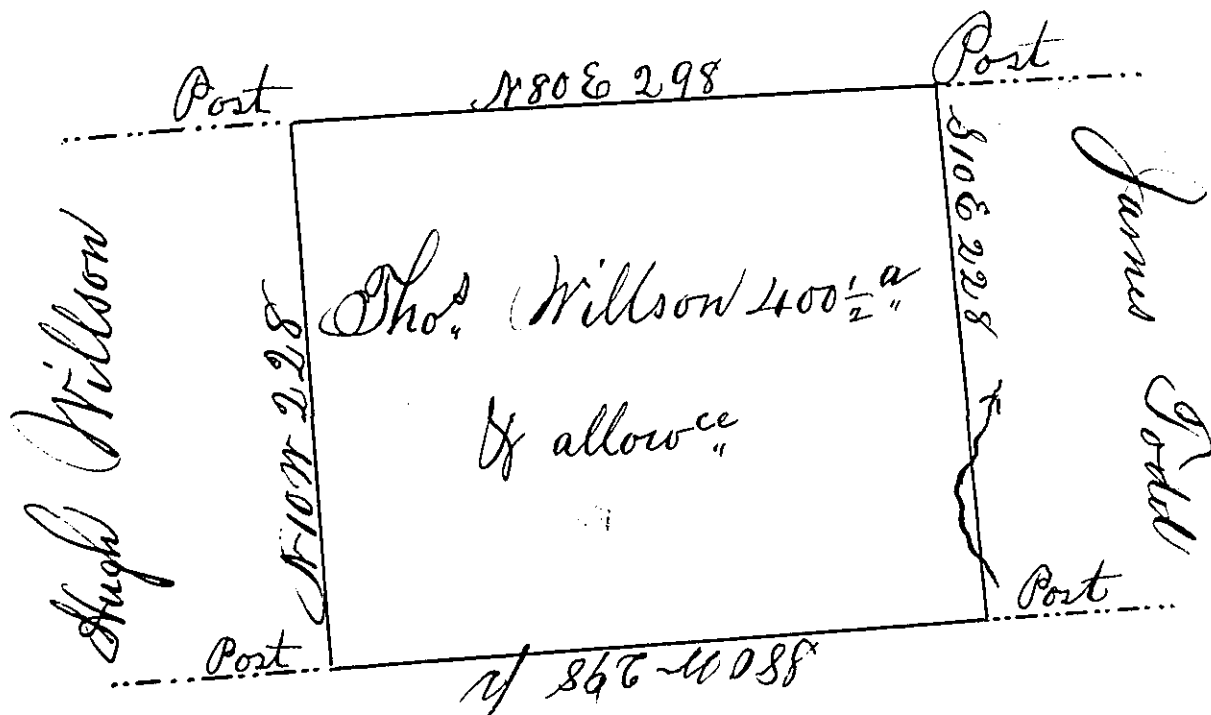 Post
N80E 298
Post
Hugh Willson
N10W 228
Tho.s Willson 400 1/2 a
& allowce
S10E 228
James Todd
Post
S80W 298 p
Post